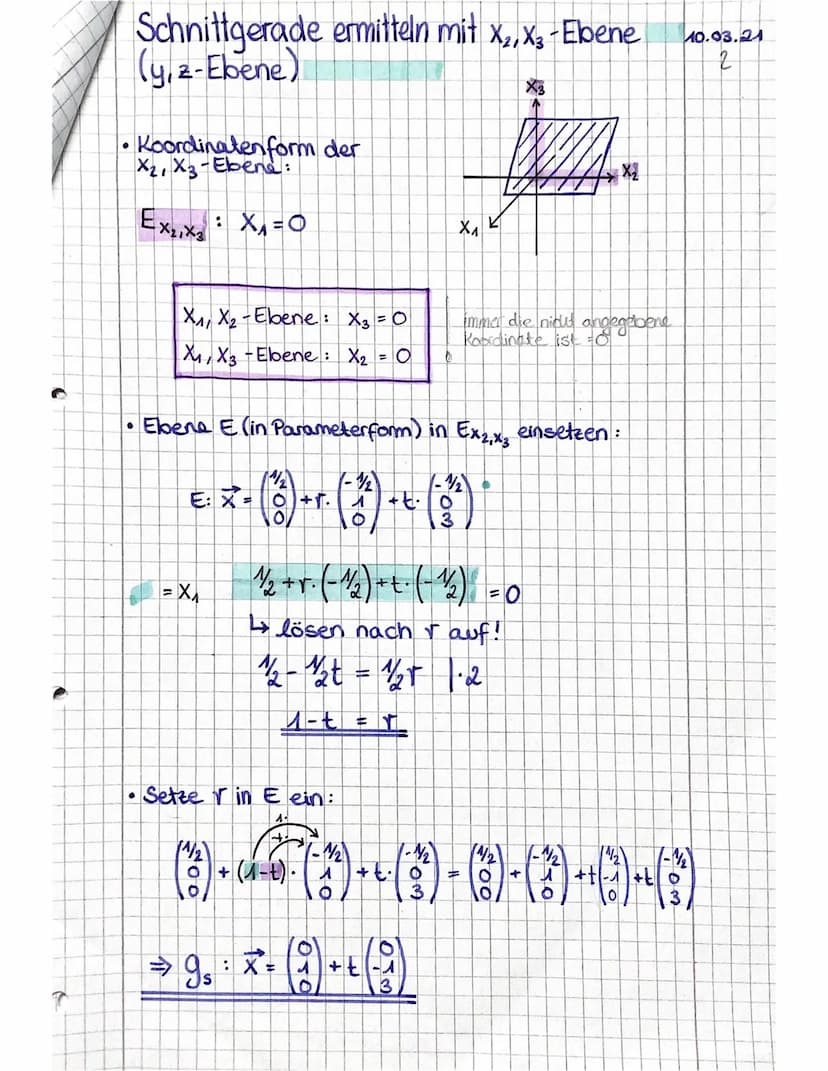 Schnittgerade ermitteln mit x₂,x₃-Ebene 10.03.21
(y,z-Ebene) 2
x₃
x₂
x₁
• Koordinatenform der
x₂, x₃-Ebene:
E x₂,x₃ : x₁ = 0
x₁, x₂-Ebene: x₃ = 0
x₁, x₃-Ebene: x₂ = 0
immer die nicht angegebene
Koordinate ist =0
• Ebene E (in Parameterform) in E x₂,x₃ einsetzen:
E: x⃗ = (1/2 0 0) + r· (-1/2 1 0) + t· (-1/2 0 3)
= x₁ 1/2 + r·(-1/2) + t·(-1/2) = 0
↳ lösen nach r auf!
1/2 - 1/2t = 1/2r |·2
1-t = r
• Setze r in E ein:
1·
+·
(1/2 0 0) + (1-t)· (-1/2 1 0) + t· (-1/2 0 3) = (1/2 0 0) + (-1/2 1 0) + t (1/2 -1 0) + t (-1/2 0 3)
⇒ gₛ : x⃗ = (0 1 0) + t (0 -1 3)